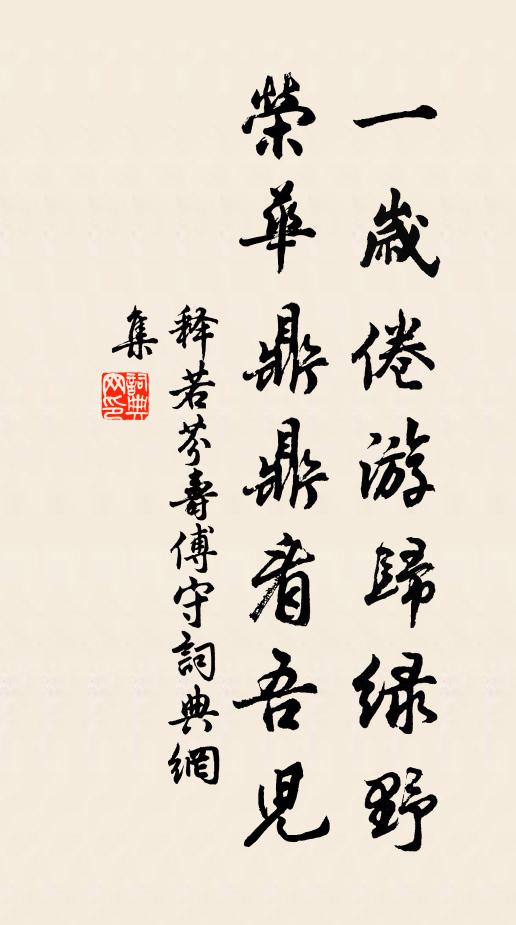 一歲倦游歸緑野
榮華鼎鼎看吾兒
释若芬壽傅守詞典網
集
詞典
网印